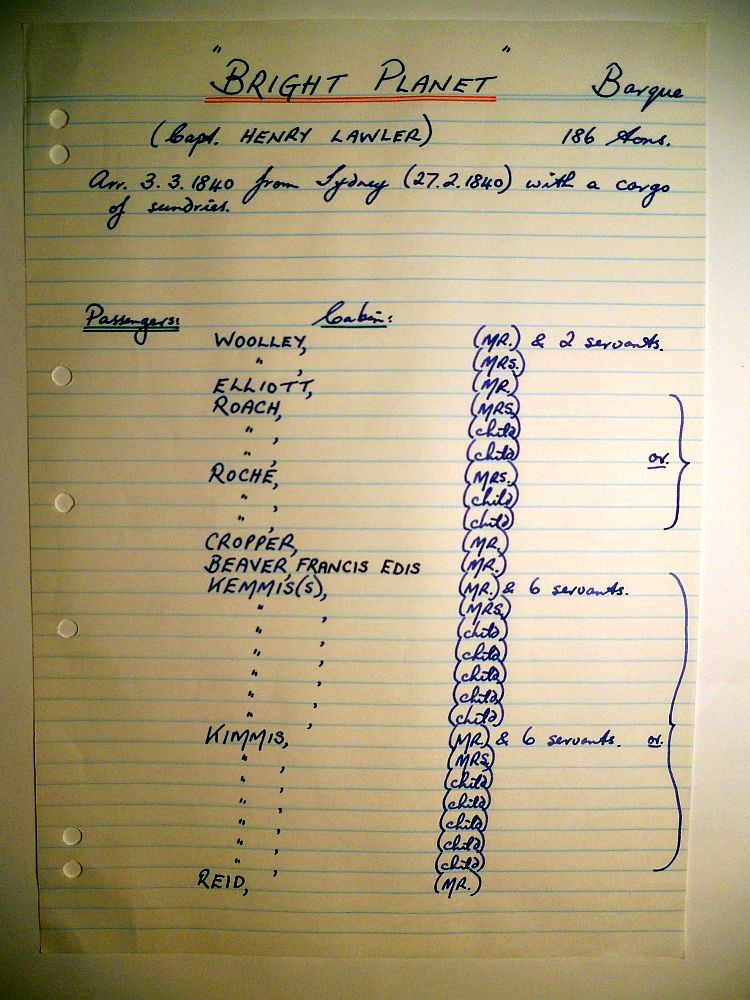 "BRIGHT PLANET" Barque
(Capt. HENRY LAWLER) 186 tons.
Arr. 3.3.1840 from Sydney (27.2.1840) with a cargo
of sundries.
Passengers: Cabin:
WOOLLEY, (MR.) & 2 servants.
" , (MRS.)
ELLIOTT, (MR.)
ROACH, (MRS.)
" , (child)
" , (child) or.
ROCHE, (MRS.)
" , (child)
" , (child)
CROPPER, (MR.)
BEAVER, FRANCIS EDIS (MR.)
KEMMIS(S), (MR.) & 6 servants.
" , (MRS.)
" , (child)
" , (child)
" , (child)
" , (child)
" , (child)
KIMMIS, (MR.) & 6 servants. or.
" , (MRS.)
" , (child)
" , (child)
" , (child)
" , (child)
" , (child)
REID, (MR.)